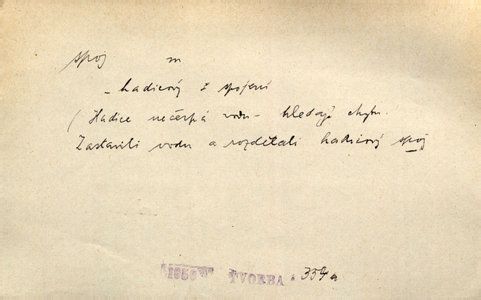 spoj m
- hadicový ž spojení
(Hadice nečerpá vodu - hledají chybu.
Zastavili vodu a rozdělali hadicový spoj
1950 TVORBA 354a